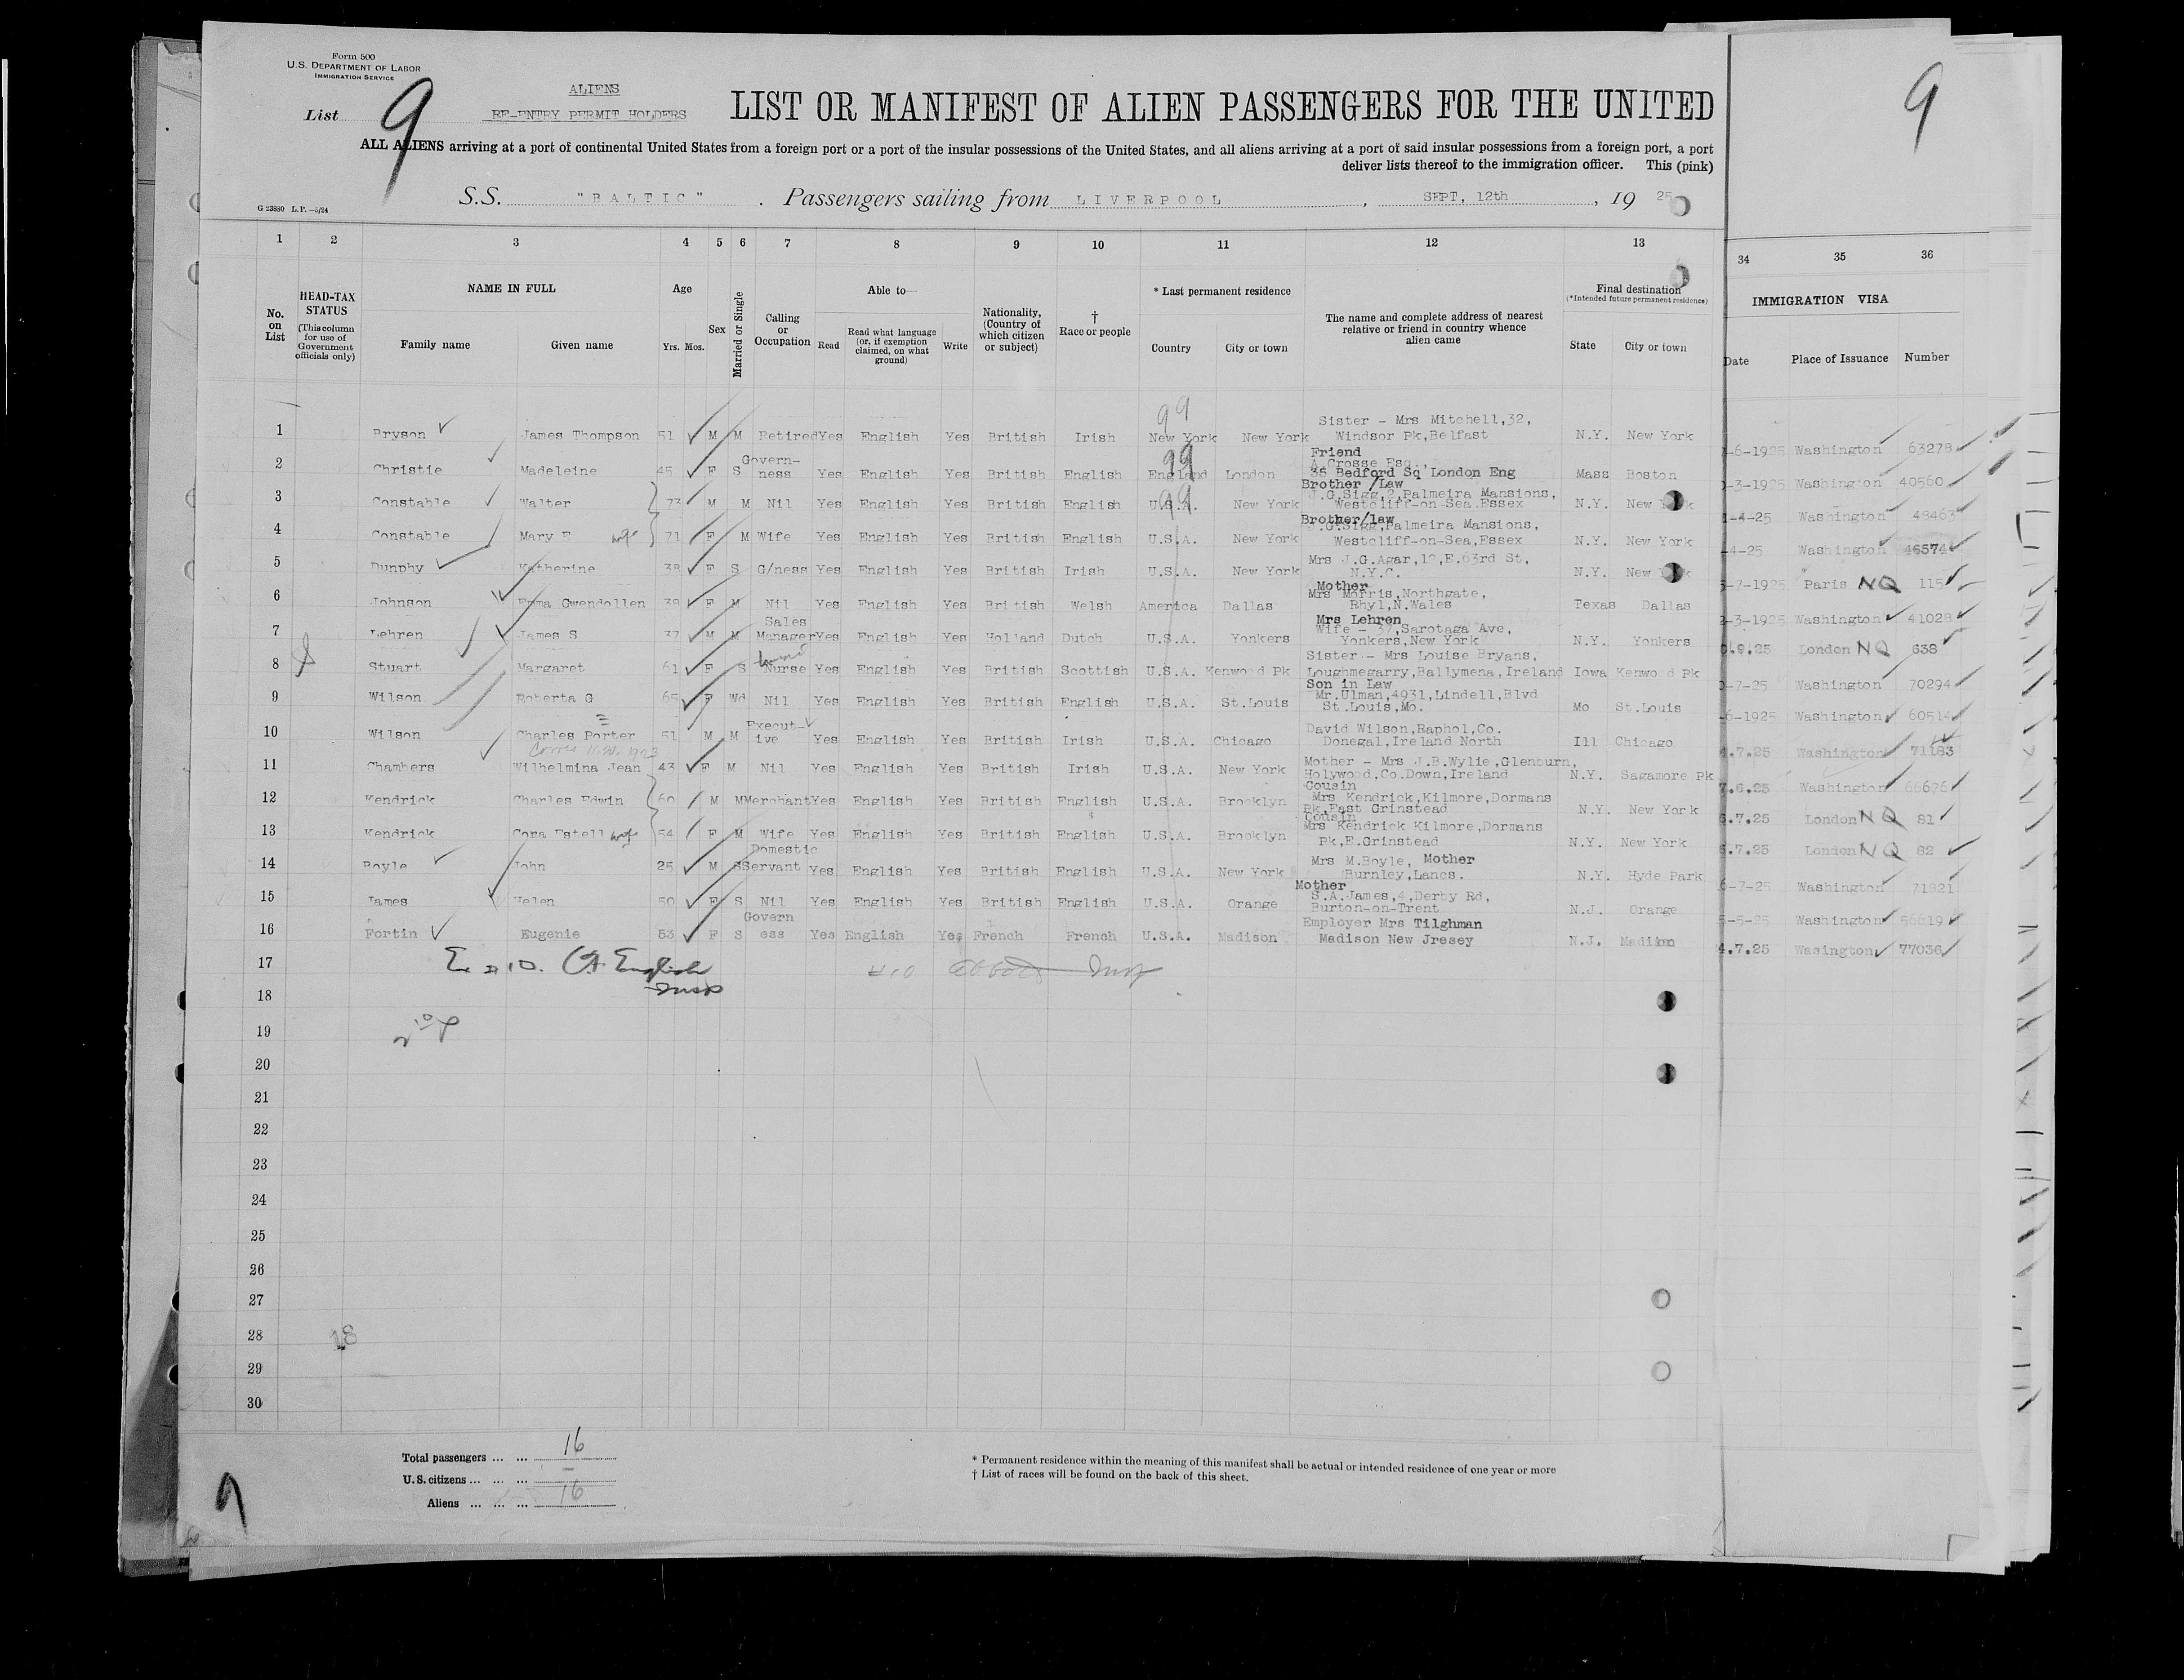 Form 500
U.S. DEPARTMENT OF LABOR
IMMIGRATION SERVICE
ALIENS
List 9 RE-ENTRY PERMIT HOLDERS LIST OR MANIFEST OF ALIEN PASSENGERS FOR THE UNITED 9
ALL ALIENS arriving at a port of continental United States from a foreign port or a port of the insular possessions of the United States, and all aliens arriving at a port of said insular possessions from a foreign port, a port
deliver lists thereof to the immigration officer. This (pink)
G 23880 L.P.—5/24 S.S. "BALTIC". Passengers sailing from LIVERPOOL, SEPT, 12th, 19 25
1 2 3 4 5 6 7 8 9 10 11 12 13 34 35 36
No. on List
HEAD-TAX STATUS (This column for use of Government officials only)
NAME IN FULL
Family name Given name
Age Yrs. Mos.
Sex
Married or Single
Calling or Occupation
Able to—
Read Read what language (or, if exemption claimed, on what ground) Write
Nationality, (Country of which citizen or subject)
† Race or people
* Last permanent residence
Country City or town
The name and complete address of nearest relative or friend in country whence alien came
Final destination (*Intended future permanent residence)
State City or town
IMMIGRATION VISA
Date Place of Issuance Number
99
1 Bryson James Thompson 51 M M Retired Yes English Yes British Irish New York New York Sister - Mrs Mitchell,32, Windsor Pk,Belfast N.Y. New York 6-1925 Washington 63278
99
2 Christie Madeleine 45 F S Govern-ness Yes English Yes British English England London Friend A.Crosse Esq., 36 Bedford Sq London Eng Mass Boston 3-1925 Washington 40560
99
3 Constable Walter 73 M M Nil Yes English Yes British English U.S.A. New York Brother /Law J.G.Sigg,2,Palmeira Mansions, Westcliff-on-Sea.Essex N.Y. New York 4-25 Washington 48463
4 Constable Mary E wife 71 F M Wife Yes English Yes British English U.S.A. New York Brother/law J.G.Sigg,Palmeira Mansions, Westcliff-on-Sea,Essex N.Y. New York 4-25 Washington 46574
5 Dunphy Katherine 38 F S G/ness Yes English Yes British Irish U.S.A. New York Mrs J.G.Agar,E.63rd St, N.Y.C. N.Y. New York 7-1925 Paris NQ 115
6 Johnson Emma Gwendollen 38 F M Nil Yes English Yes British Welsh America Dallas Mother Mrs Morris,Northgate, Rhyl,N.Wales Texas Dallas 3-1925 Washington 41028
7 Lehren James S 37 M M Sales Manager Yes English Yes Holland Dutch U.S.A. Yonkers Mrs Lehren Wife - 37,Sarotaga Ave, Yonkers,New York N.Y. Yonkers 9.25 London NQ 638
8 Stuart Margaret 61 F S Nurse Yes English Yes British Scottish U.S.A. Kenwood Pk Sister - Mrs Louise Bryans, Loughmegarry,Ballymena,Ireland Iowa Kenwood Pk 7-25 Washington 70294
9 Wilson Roberta G 65 F Wd Nil Yes English Yes British English U.S.A. St.Louis Son in Law Mr.Ulman,4931,Lindell,Blvd St.Louis,Mo. Mo St.Louis 6-1925 Washington 60514
10 Wilson Charles Porter 51 M M Execut-ive Yes English Yes British Irish U.S.A. Chicago David Wilson,Raphol,Co. Donegal,Ireland North Ill Chicago 7.25 Washington 71183
11 Chambers Wilhelmina Jean 43 F M Nil Yes English Yes British Irish U.S.A. New York Mother - Mrs J.B.Wylie,Glenburn, Holywood,Co.Down,Ireland N.Y. Sagamore Pk 7.6.25 Washington 66676
12 Kendrick Charles Edwin 60 M M Merchant Yes English Yes British English U.S.A. Brooklyn Cousin Mrs Kendrick,Kilmore,Dormans Pk,East Grinstead N.Y. New York 7.25 London NQ 81
13 Kendrick Cora Estell wife 54 F M Wife Yes English Yes British English U.S.A. Brooklyn Cousin Mrs Kendrick Kilmore,Dormans Pk,E.Grinstead N.Y. New York 7.25 London NQ 82
14 Boyle John 25 M S Domestic Servant Yes English Yes British English U.S.A. New York Mrs M.Boyle, Mother Burnley,Lancs. N.Y. Hyde Park 6-7-25 Washington 71821
15 James Helen 50 F S Nil Yes English Yes British English U.S.A. Orange Mother S.A.James,4,Derby Rd, Burton-on-Trent N.J. Orange 5-5-25 Washington 56619
16 Fortin Eugenie 53 F S Govern ess Yes English Yes French French U.S.A. Madison Employer Mrs Tilghman Madison New Jresey N.J. Madison 4.7.25 Wasington 77036
17 English
Insp
18
19
20
21
22
23
24
25
26
27
28 18
29
30
Total passengers ... ... 16
U.S. citizens ... ... ... —
Aliens ... ... ... 16
* Permanent residence within the meaning of this manifest shall be actual or intended residence of one year or more
† List of races will be found on the back of this sheet.
9